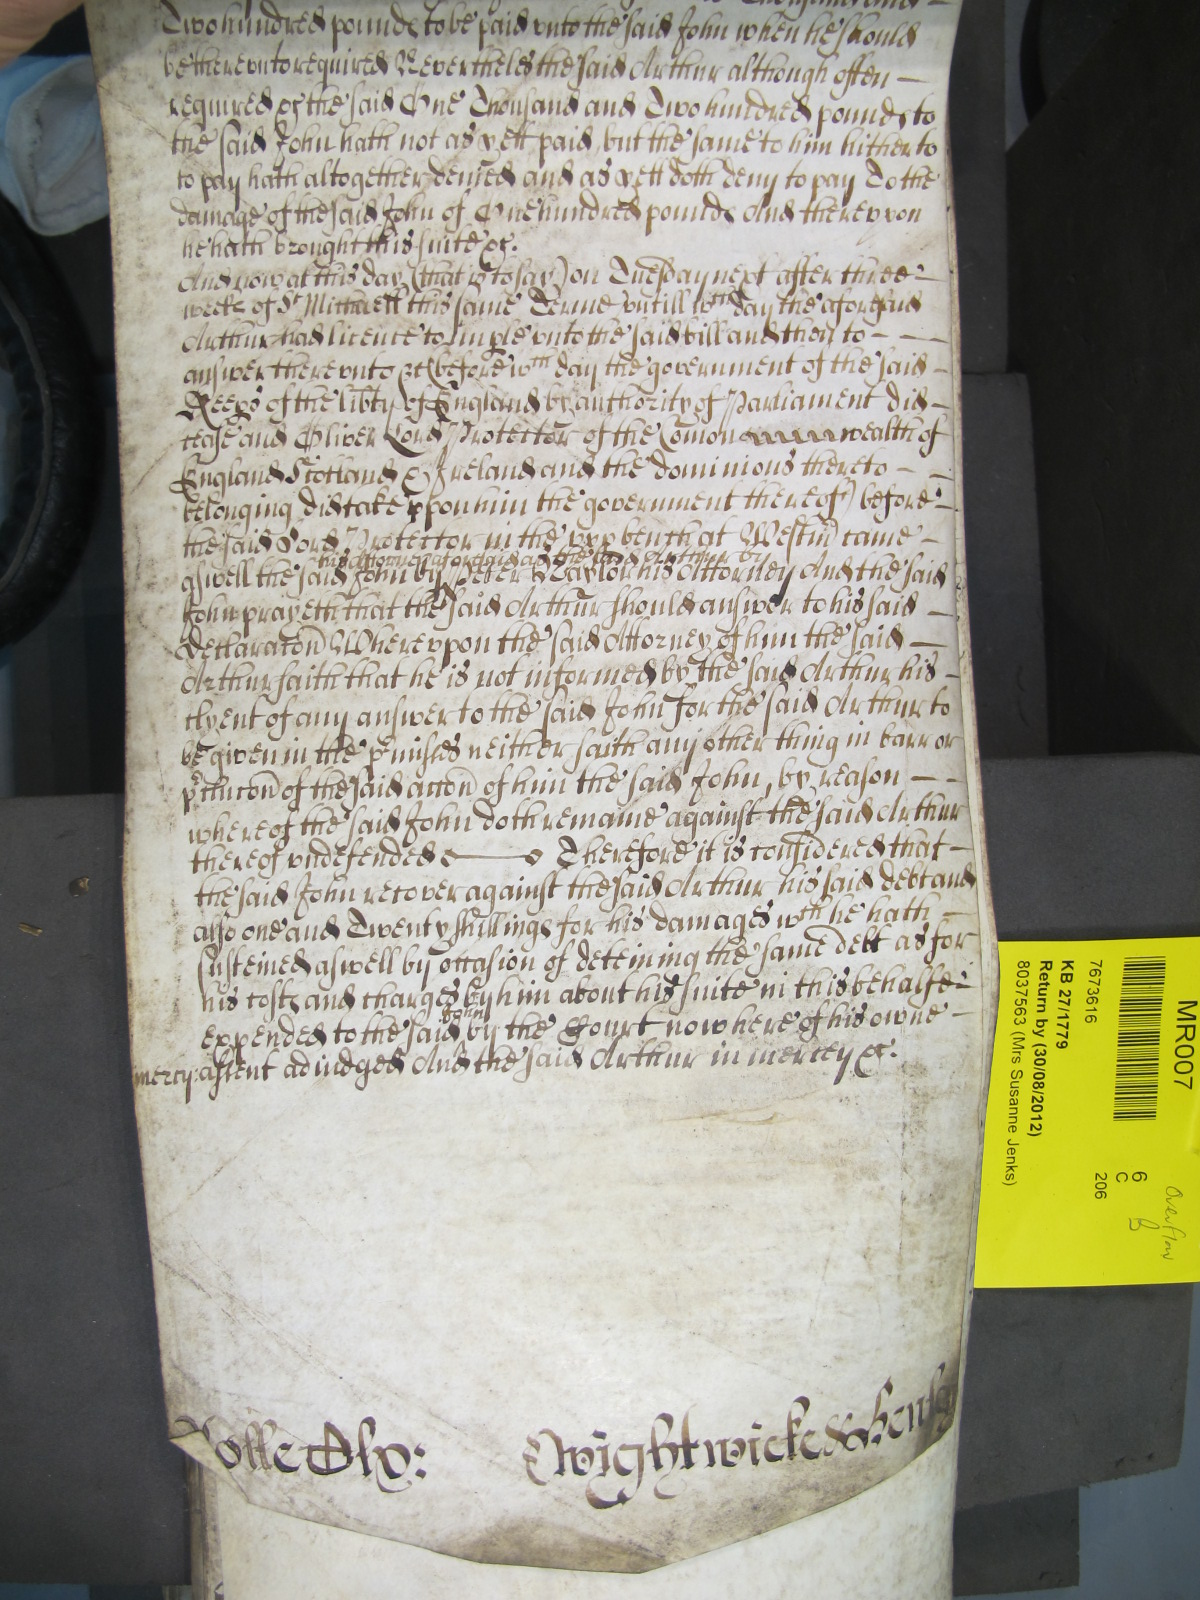 Two hundred pounds to be paid unto the said John when he should
be therevnto required Nevertheles the said Arthur although often —
required of the said One Thousand and Two hundred pounds to
the said John hath not as yett paid but the same to him hitherto
to pay hath altogether denied and as yett doth deny to pay To the
damage of the said John of One hundred pounds And therevpon
he hath brought this suite &c.
And now at this day (that is to say) on Tuesday next after three —
weeks of St Michaell this same Terme vntill wch day the aforesaid
Arthur had licence to imple vnto the said bill and then to — — —
answer therevnto &c (before wch day the government of the said —
Keeps of the libty of England by authority of Parliament did —
cease and Oliver Lord Protector of the Comon wealth of
England Scotland & Ireland and the dominions thereto — —
belonging did take vppon him the government thereof) before —
the said Lord Protector in the vpp bench at Westm came —
his attorney aforesaid as the said Arthur by
aswell the said John by Peter Naylor his Attorney And the said
John prayeth that the said Arthur should answer to his said —
declaracon Wherevpon the said Attorney of him the said —
Arthur saith that he is not informed by the said Arthur his —
clyent of any answer to the said John for the said Arthur to
be given in the pmisses neither saith any other thing in barr or
pclucon of the said accon of him the said John, by reason — —
whereof the said John doth remaine against the said Arthur
thereof vndefended — Therefore it is considered that —
the said John recover against the said Arthur his said debt and
also one and Twenty shillings for his damages wch he hath —
susteined aswell by occasion of deteining the same debt as for
his costs and charges by him about his suite in this behalfe —
John
expended to the said by the Court now here of his owne —
mercy: assent adiudged And the said Arthur in mercy &c.
Rolle Clx: Wightwicke &
MR007
7673616
KB 27/1779
Return by (30/08/2012)
8037563 (Mrs Susanne Jenks)
6
C
206
Overflow
B